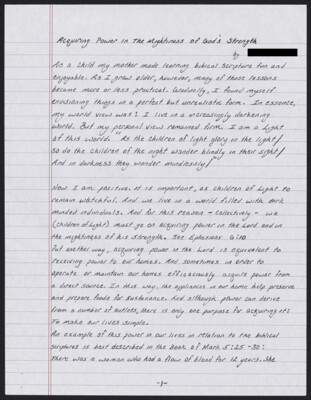 Acquiring Power in The Mightiness of God's Strength
by
As a child my mother made learning biblical Scripture fun and
enjoyable. As I grew older, however, many of those lessons
became more or less practical. Gradually, I found myself
envisioning things in a perfect but unrealistic form. In essence,
my world view was: I live in a increasingly darkening
world. But my personal view remained form: I am a Light
of this world. "As the children of light glory in the light!
So do the children of the night wander blindly in their sight!
And in darkness they wander mindlessly!"
Now I am positive, it is important, as children of Light to
remain watchful. And we live in a world filled with dark
minded individuals. And for this reason - collectively - we
(children of Light) must go on acquiring power in the Lord and in
the mightiness of his strength. See Ephesians 6:10
Put another way, acquiring power in the Lord is equivalent to
receiving power to our homes. And sometimes in order to
operate or maintain our homes efficaciously acquire power from
a direct source. In this way, the appliances in our home help preserve
and prepare foods for sustenance. And although power can derive
from a number of outlets, there is only one purpose for acquiring it:
To make our lives simple.
An example of this power in our lives in relation to the biblical
scriptures is best described in the book of Mark 5:25-30:
There was a woman who had a flow of blood for 12 years. She
-1-